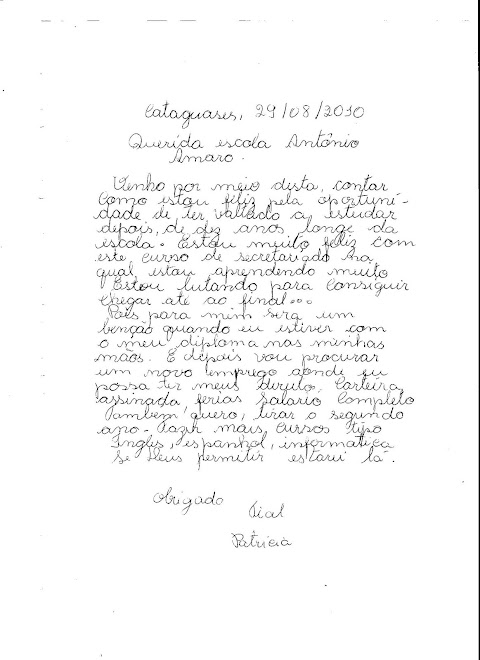 Cataguases, 29/08/2010
Querida escola Antônio
Amaro.
Venho por meio desta, contar
como estou feliz pela oportuni-
dade de ter valtado a estudar
depois, de dez anos longe da
escola. Estou muito feliz com
este, curso de secretariado na
qual estou aprendendo muito
Estou lutando para conseguir
chegar até ao final...
Pois para mim será um
benção quando eu estiver com
o meu diploma nas minhas
mãos. E depois vou procurar
um novo emprego aonde eu
possa ter meus direito, Carteira
assinada ferias Salario completo
Tambem quero, tirar o segundo
ano. Fazer mais, cursos tipo
Ingles, espanhol, informatica
Se Deus permitir estarei lá.
Obrigado
Tial
Patricia